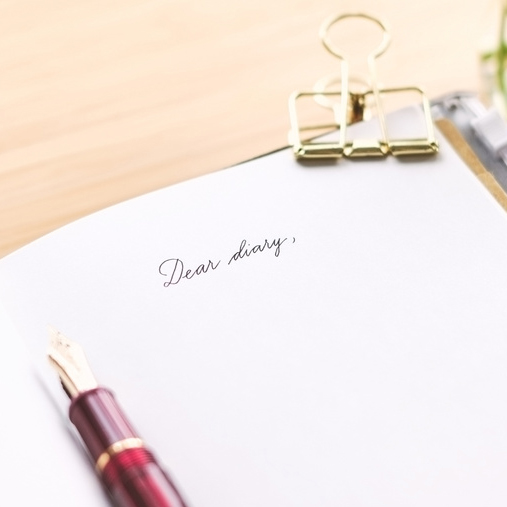 Dear diary,